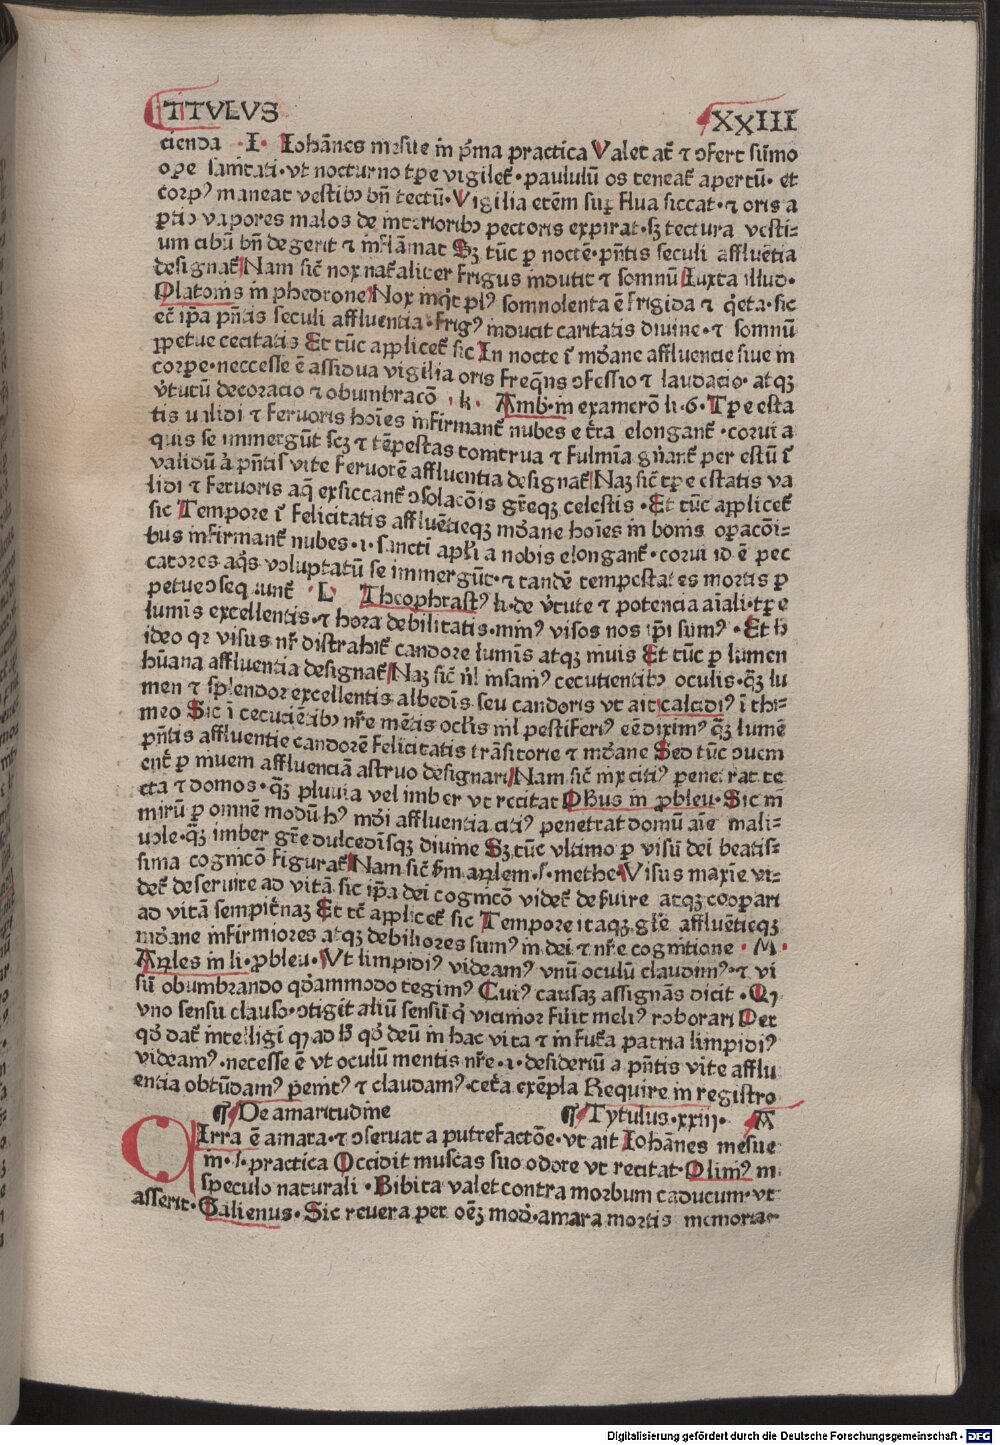 TITVLVS XXIII
cienda · I · Iohānes mesue in p̄ma practica Valet at̄ ⁊ ꝯfert sum̄o
oꝑe sanitati · vt nocturno tꝑe vigilet᷑ · paululū os teneat᷑ apertū · et
corpꝰ maneat vestibꝫ bn̄ tectū · Vigilia eteīm suꝑflua siccat · ⁊ oris a
ꝑtio vapores malos de interioribꝫ pectoris expirat · sꝫ tectura vesti⸗
um cibū bn̄ degerit ⁊ inflāmat Sꝫ tūc ꝑ noctē · pn̄tis seculi affluētia
designat᷑ Nam sic̄ nox nat᷑aliter frigus inducit ⁊ somnū Iuxta illud ·
Platonis in phedrone Nox inq̇t plꝰ somnolenta ē frigida ⁊ q̇eta · sic
et̄ ip̄a pn̄tis seculi affluentia · frigꝰ inducit caritatis diuine · ⁊ somnū
ꝑpetue cecitatis Et tūc applicet᷑ sic In nocte ī mūdane affluencie siue in
corpe · neccesse ē assidua vigilia oris freq̄ns ꝯfessio ⁊ laudacio · atqꝫ
v̄tutū decoracio ⁊ obumbracō · k · Amb · in examerō li · 6 · Tꝑe esta
tis ualidi ⁊ feruoris hoīes infirmant᷑ nubes e t̄ra elongant᷑ · corui a
quis se immergūt scꝫ ⁊ tēpestas tonitrua ⁊ fulmīa gn̄ant᷑ per estū ī
validū ⁊ pn̄tis vite feruorē affluentia designat᷑ Naꝫ sic̄ tꝑe estatis va
lidi ⁊ feruoris aq̄ exsiccant᷑ ꝯsolacōis gr̄eqꝫ celestis · Et tūc applicet᷑
sic Tempore ī felicitatis affluētieqꝫ mūdane hoīes in bonis oꝑacōi⸗
bus infirmant᷑ nubes · i · sancti apl̄i a nobis elongant᷑ · corui id ē pec
catores aq̇s voluptatū se immergūt · ⁊ tandē tempestates mortis ꝑ
petue ꝯsequunt᷑ · L · Theophrastꝰ li · de v̄tute ⁊ potencia aīali · tꝑe
lumīs excellentis · ⁊ hora debilitatis · nimꝰ visos nos ip̄i sumꝰ · Et h̄
ideo qꝛ visus nr̄ distrahit᷑ candore lumīs atqꝫ niuis Et tūc ꝑ lumen
hūana affluentia designat᷑ Naꝫ sic̄ nl̄ insanꝰ cecutientibꝫ oculis · q̄ꝫ lu
men ⁊ splendor excellentis albedīs seu candoris vt ait calcidiꝰ ī thi⸗
meo Sic ī cecuciētibꝫ nr̄e mētis oclis nil pestiferiꝰ eē diximꝰ q̄ꝫ lumē
pn̄tis affluentie candorē felicitatis trāsitorie ⁊ mūdane Sed tūc ꝯuem
ent᷑ ꝑ niuem affluenciā astruo designari Nam sic̄ nix citiꝰ penetrat te
cta ⁊ domos · q̄ꝫ pluuia vel imber vt recitat Obus in pbleu · Sic ni
mirū ꝑ omnē modū hꝰ mūdi affluentia citiꝰ penetrat domū aīe mali⸗
uole · q̄ꝫ imber gr̄e dulcedīsqꝫ diuine Sꝫ tūc vltimo ꝑ visū dei beatis⸗
sima cognicō figurat᷑ Nam sic̄ s̄m arīlem · s · methe Visus maxīe vi⸗
det᷑ deseruire ad vitā sic ip̄a dei cognicō videt᷑ deseruire atqꝫ cooꝑari
ad vitā sempit̄naꝫ Et tc̄ applicet᷑ sic Tempore itaqꝫ gl̄e affluētieqꝫ
mūdane infirmiores atqꝫ debiliores sumꝰ in dei ⁊ nr̄e cognitione · M ·
Arīles in li · pbleu · Vt limpidiꝰ videamꝰ vnū oculū claudimꝰ · ⁊ vi
sū obumbrando qd̄ammodo tegimꝰ Cuiꝰ causaꝫ assignās dicit · Qꝛ
vno sensu clauso · ꝯtigit aliū sensū q̇ vicinior fuit meliꝰ roborari Per
qd̄ dat᷑ intelligi qꝛ ad h̄ qd̄ deū in hac vita ⁊ in fut᷑a patria limpidiꝰ
videamꝰ · necesse ē vt oculū mentis nr̄e · i · desideriū a pn̄tis vite afflu
entia obtūdamꝰ p̄emt̄ꝰ ⁊ claudamꝰ · cet̄a exēpla Require in registro
¶ De amaritudine ¶ Tytulus · xxiij · A
CIrra ē amara · ⁊ ꝯseruat a putrefactōe · vt ait Iohānes mesue
in · s · practica Occidit muscas suo odore vt recitat · Plinīꝰ in
speculo naturali · Bibita valet contra morbum caducum · vt
asserit · Galienus · Sic reuera per oēꝫ mod̄ · amara mortis memoria
Digitalisierung gefördert durch die Deutsche Forschungsgemeinschaft · DFG